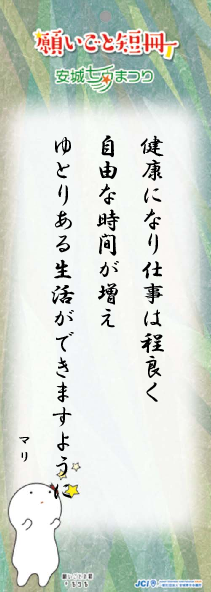 願いごと短冊
安城七夕まつり
健康になり仕事は程良く
自由な時間が増え
ゆとりある生活ができますように
マリ
JCI